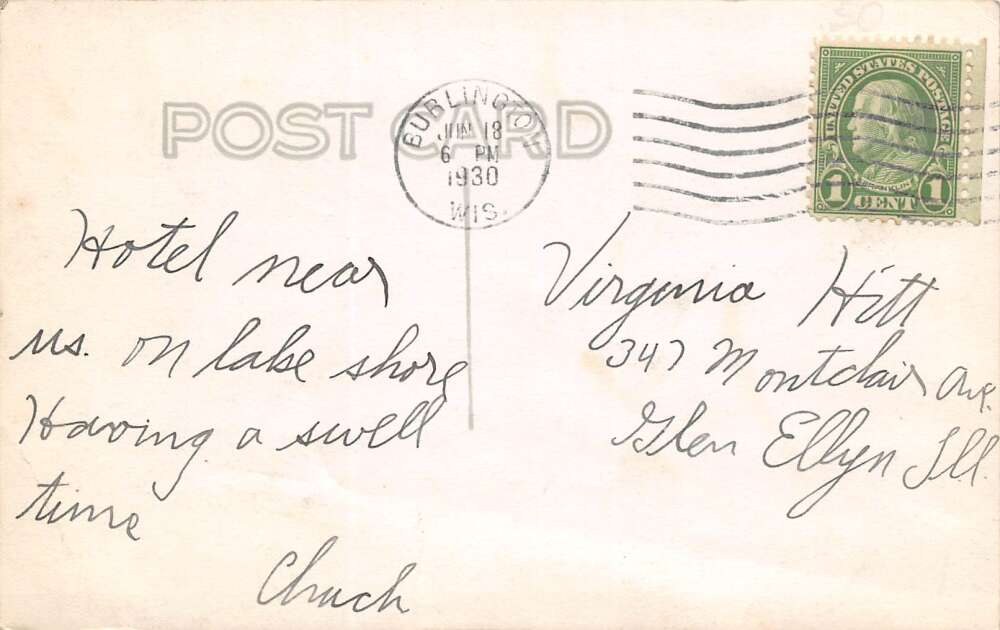 POST CARD
BURLINGTON
JUN 18
6 PM
1930
WIS.
UNITED STATES POSTAGE
FRANKLIN
1 CENT 1
Hotel near
us. on lake shore
Having a swell
time
Chuck
Virginia Hitt
347 Montclair Ave.
Glen Ellyn Ill.